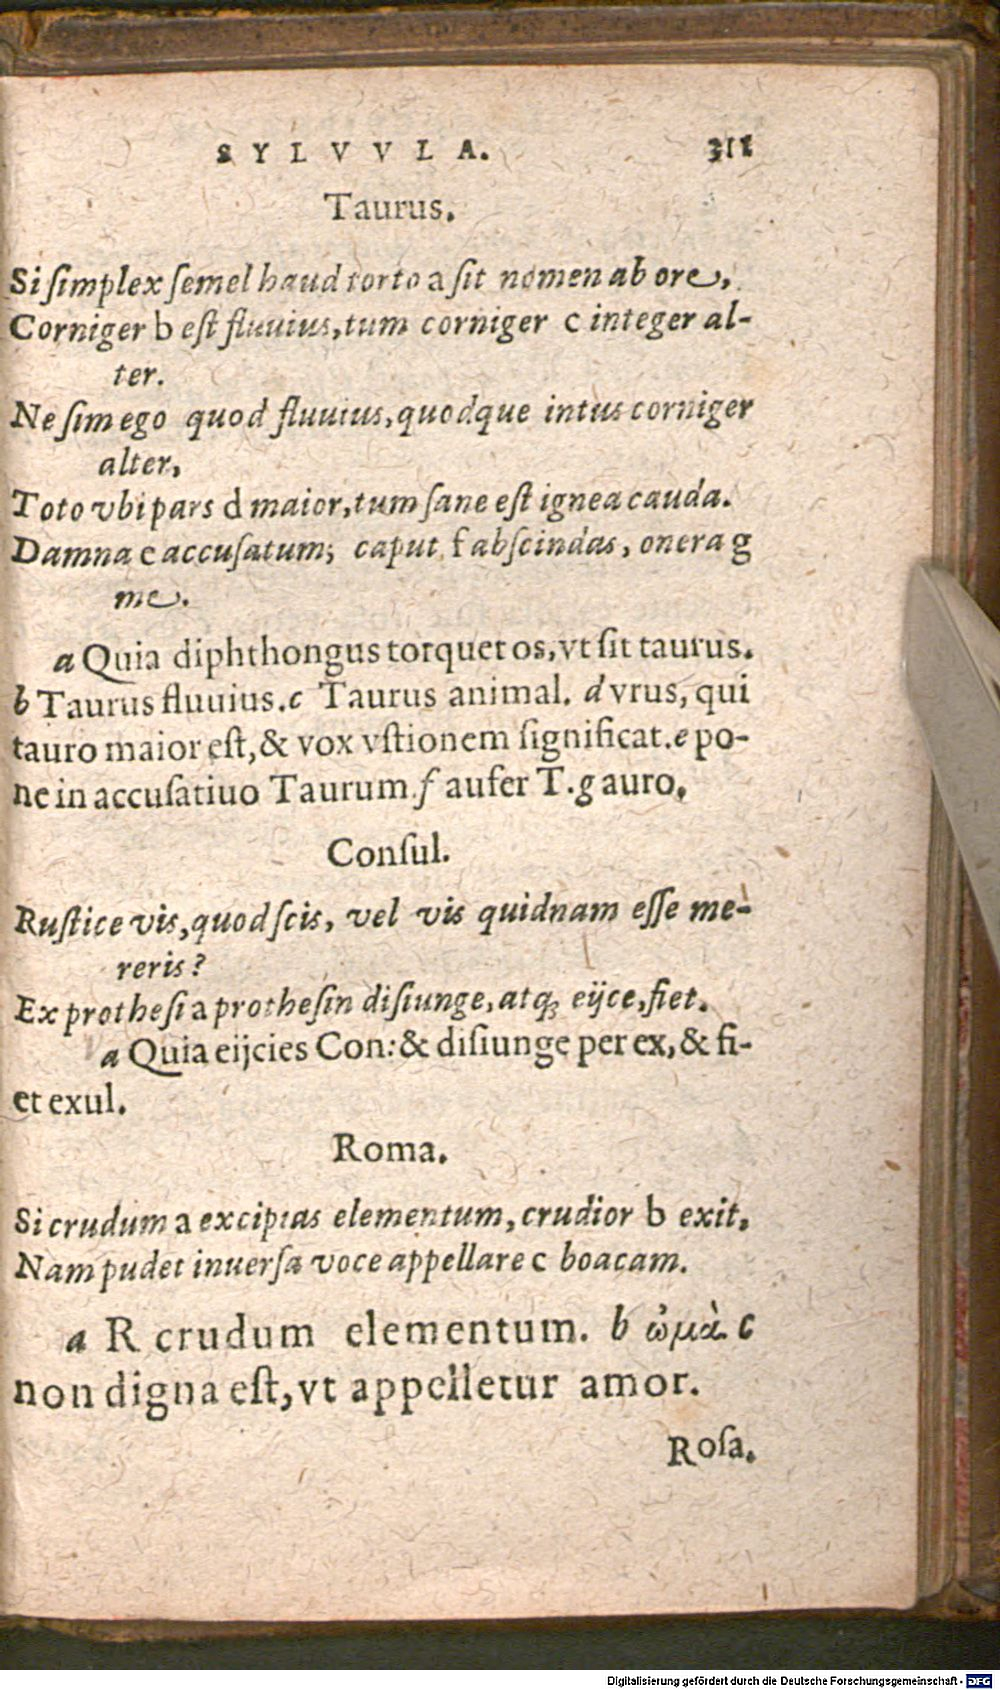 SYLVVLA. 311
Taurus.
Si ſimplex ſemel haud torto a ſit nomen ab ore,
Corniger b eſt fluuius, tum corniger c integer al-
ter.
Ne ſim ego quod fluuius, quodque intus corniger
alter,
Toto vbi pars d maior, tum ſane eſt ignea cauda.
Damna e accuſatum; caput f abſcindas, onera g
me.
a Quia diphthongus torquet os, vt ſit taurus.
b Taurus fluuius. c Taurus animal. d vrus, qui
tauro maior eſt, & vox vſtionem ſignificat. e po-
ne in accuſatiuo Taurum f aufer T. g auro,
Conſul.
Ruſtice vis, quod ſcis, vel vis quidnam eſſe me-
reris?
Ex protheſi a protheſin diſiunge, atq; eijce, fiet.
a Quia eijcies Con: & diſiunge per ex, & fi-
et exul.
Roma.
Si crudum a excipias elementum, crudior b exit,
Nam pudet inuerſa voce appellare c boacam.
a R crudum elementum. b ὠμὰ. c
non digna eſt, vt appelletur amor.
Roſa.
Digitalisierung gefördert durch die Deutsche Forschungsgemeinschaft - DFG